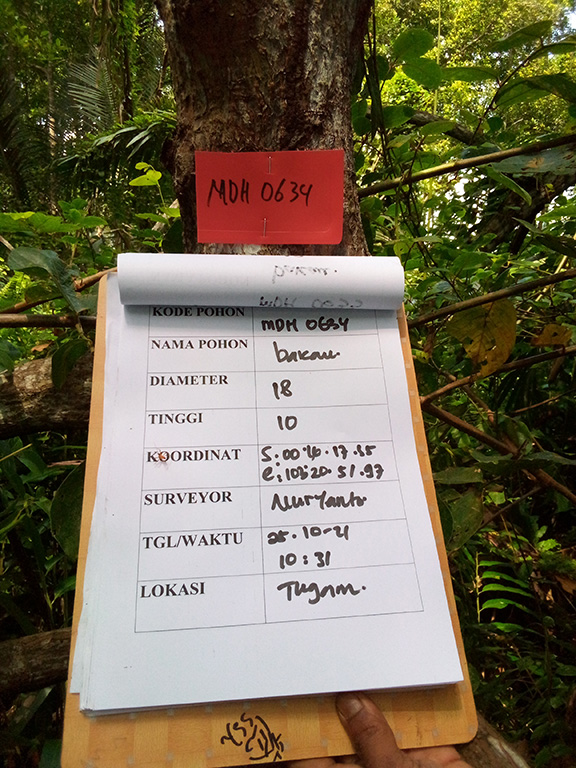 MDH 0634
KODE POHON MDH 0634
NAMA POHON bakau
DIAMETER 18
TINGGI 10
KOORDINAT
SURVEYOR Nuryanto
TGL/WAKTU 25.10-21
10:31
LOKASI